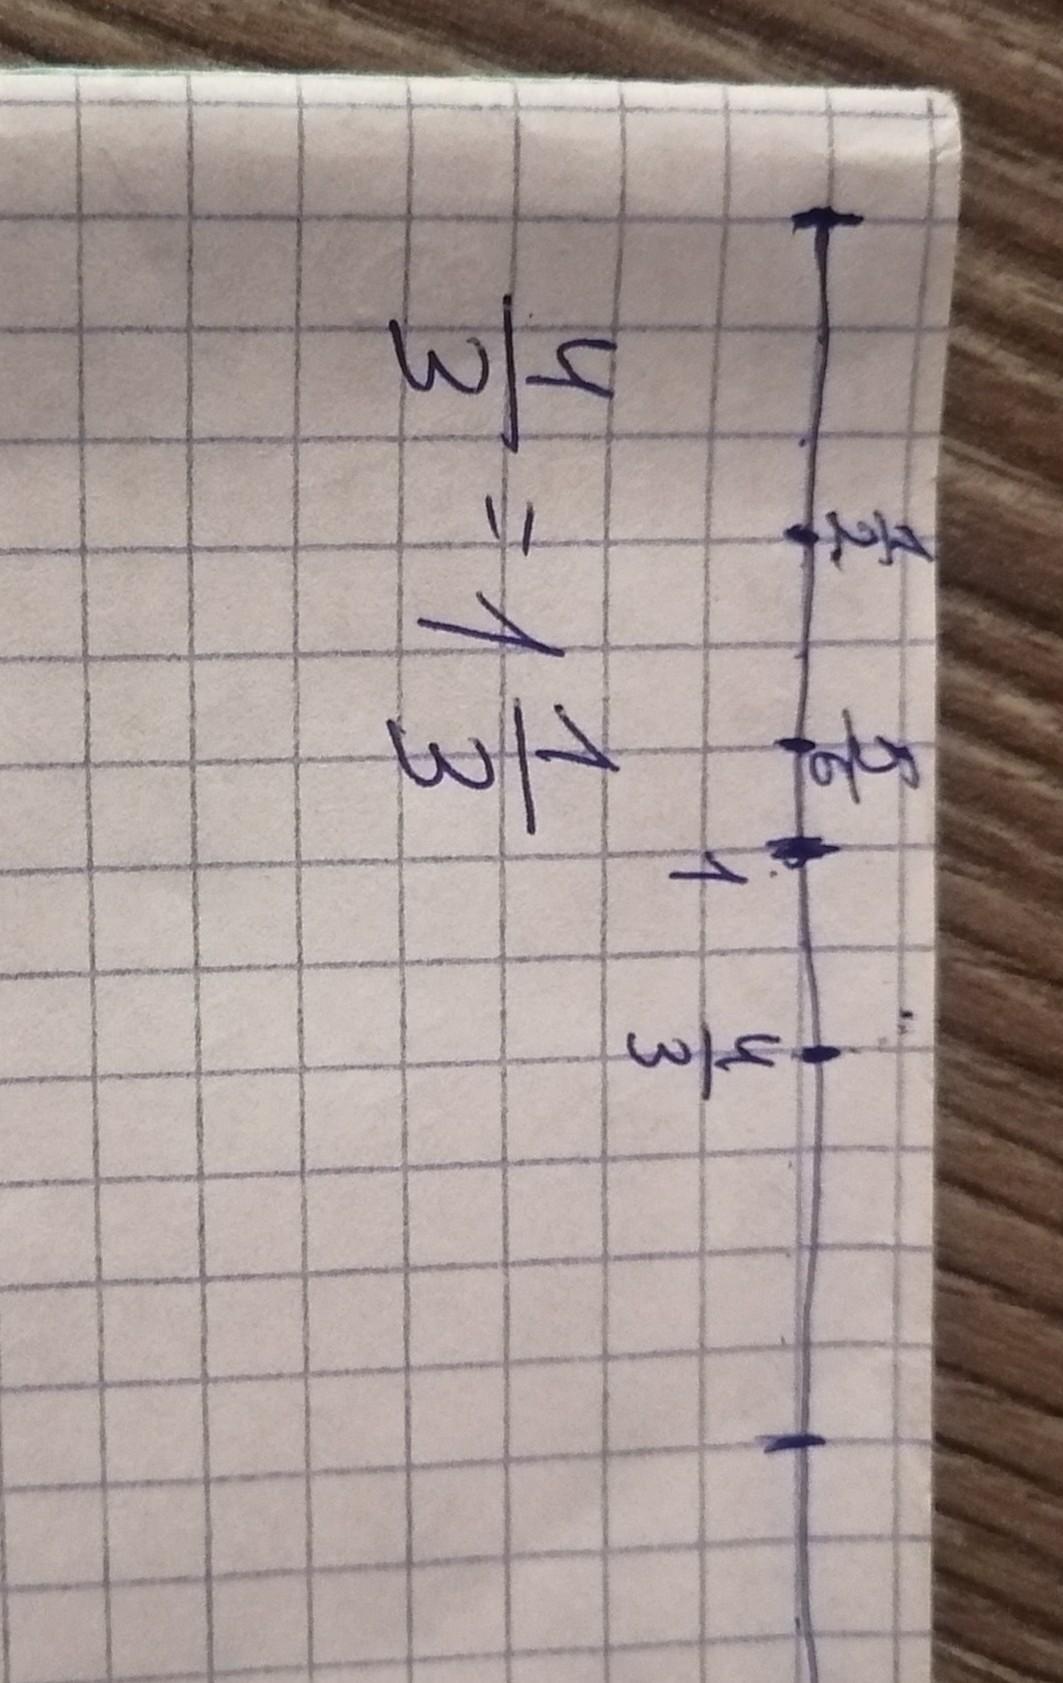 1/2 5/6 4/3
1
4/3 = 1 1/3